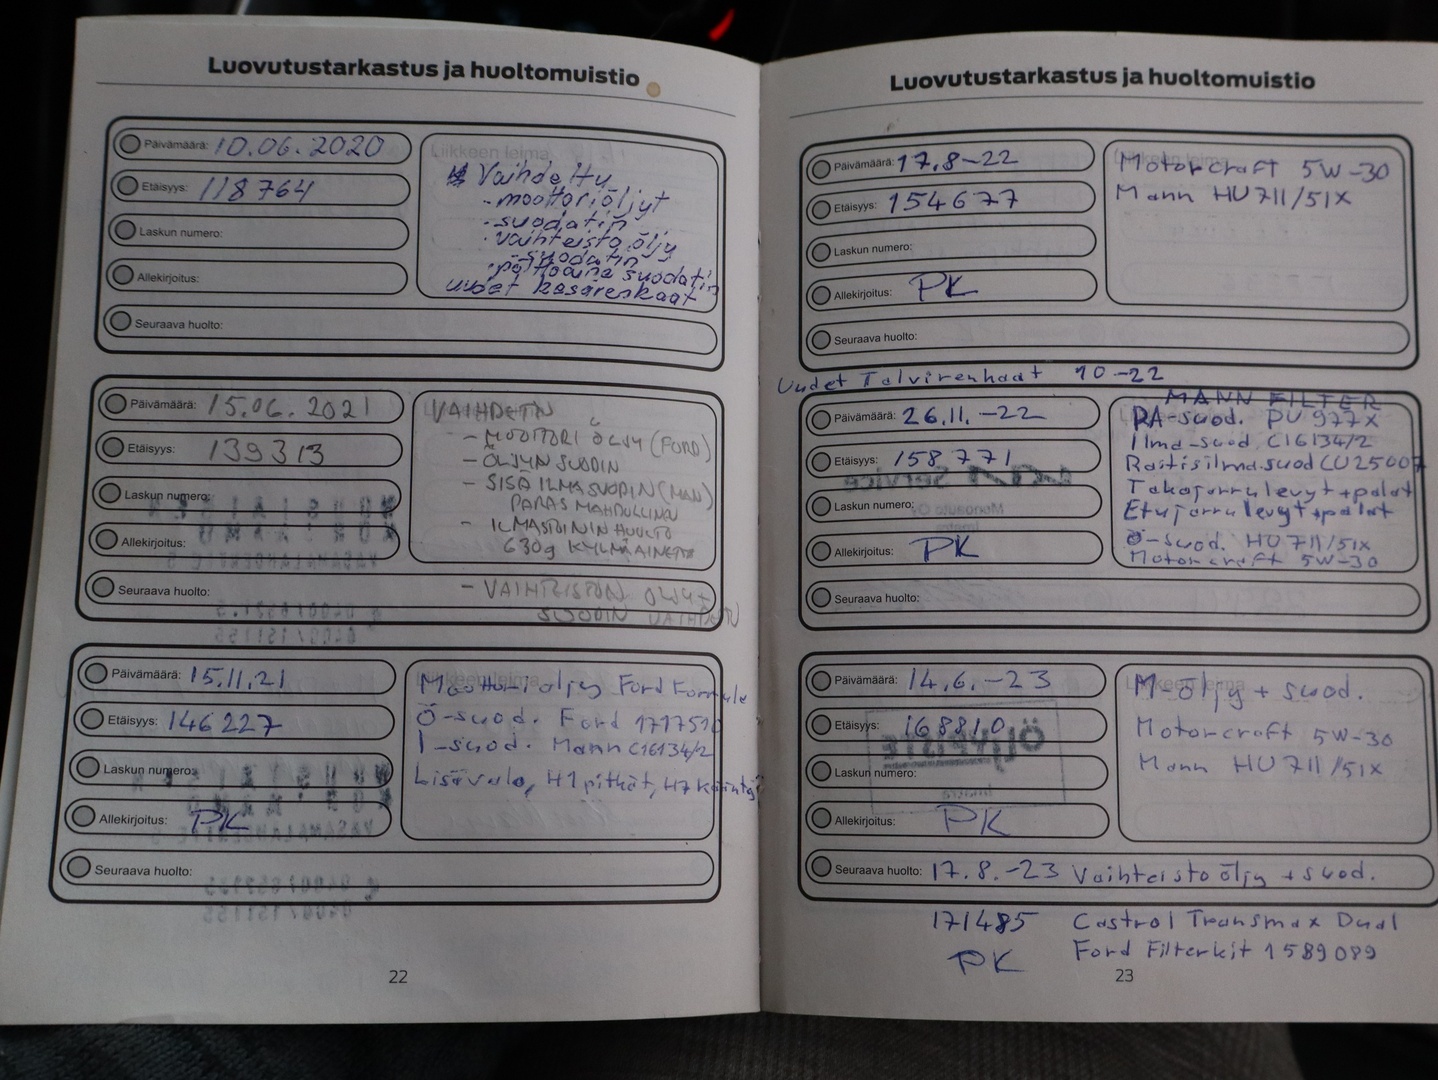 Luovutustarkastus ja huoltomuistio
Päivämäärä: 10.06.2020
Etäisyys: 118764
Laskun numero:
Allekirjoitus:
Liikkeen leima
Vaihdettu
- moottoriöljyt
- suodatin
- vaihteisto öljy
- suodatin
- polttoaine suodatin
uudet kesärenkaat
Seuraava huolto:
Päivämäärä: 15.06.2021
Etäisyys: 139313
Laskun numero:
Allekirjoitus:
VAIHDETTU
- MOOTTORI ÖLJY (FORD)
- ÖLJYN SUODIN
- SISÄ ILMASUODIN (MAN)
PARAS MAHDOLLINEN
- ILMASTOINNIN HUOLTO
630g KYLMÄAINETTA
Seuraava huolto:
- VAIHTEISTON ÖLJYT
SUODIN VAIHDETTU
Päivämäärä: 15.11.21
Etäisyys: 146227
Laskun numero:
Allekirjoitus: PK
Moottoriöljy Ford Formula
Ö-suod. Ford 1717510
I-suod. Mann C16134/2
Lisävalo, H1 pitkät, H7
Seuraava huolto:
22
Luovutustarkastus ja huoltomuistio
Päivämäärä: 17.8-22
Etäisyys: 154677
Laskun numero:
Allekirjoitus: PK
Motorcraft 5W-30
Mann HU711/51X
Seuraava huolto:
Uudet Talvirenkaat 10-22
Päivämäärä: 26.11.-22
Etäisyys: 158771
Laskun numero:
Allekirjoitus: PK
MANN FILTER
PA-suod. PU 977X
Ilma-suod C16134/2
Raitisilma.suod CU25007
Takajarrulevyt+palat
Etujarrulevyt+palat
Ö-suod. HU711/51X
Motorcraft 5W-30
Seuraava huolto:
Päivämäärä: 14.6.-23
Etäisyys: 168810
Laskun numero:
Allekirjoitus: PK
M-öljy + suod.
Motorcraft 5W-30
Mann HU711/51X
Seuraava huolto: 17.8.-23 Vaihteistoöljy + suod.
171485 Castrol Transmax Dual
PK Ford Filterkit 1589089
23